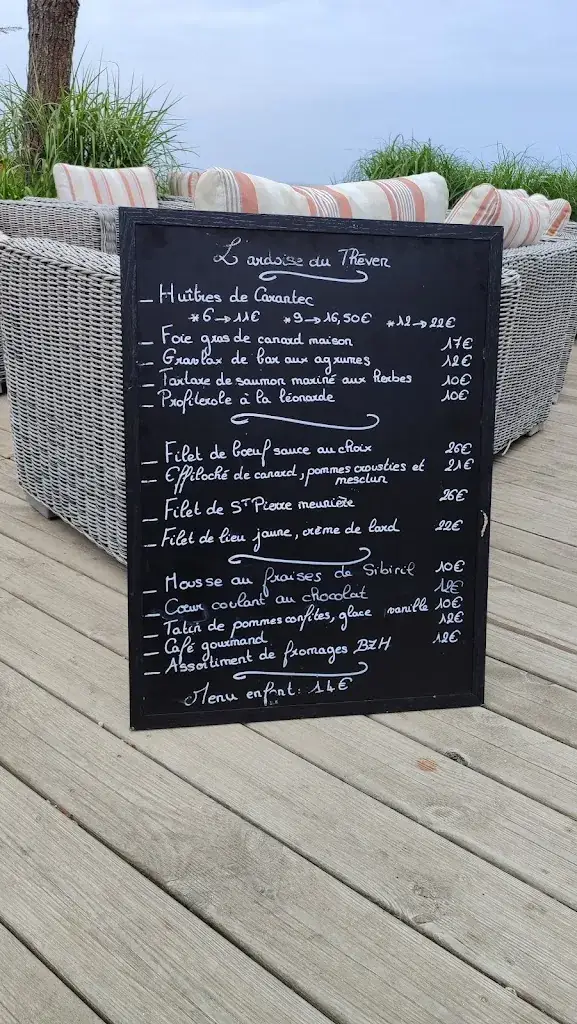 L'ardoise du Théven
_ Huîtres de Carantec
*6→11€ *9→16,50€ *12→22€
_ Foie gras de canard maison 17€
_ Gravlax de bar aux agrumes 12€
_ Tartare de saumon mariné aux herbes 10€
_ Profiterole à la léonarde 10€
_ Filet de boeuf sauce au choix 26€
_ Effiloché de canard, pommes crousties et 21€
mesclun
_ Filet de St Pierre meunière 26€
_ Filet de lieu jaune, crème de lard 22€
_ Mousse au fraises de Sibiril 10€
_ Coeur coulant au chocolat 12€
_ Tatin de pommes confites, glace vanille 10€
_ Café gourmand 12€
_ Assortiment de fromages BZH 12€
Menu enfant: 14€